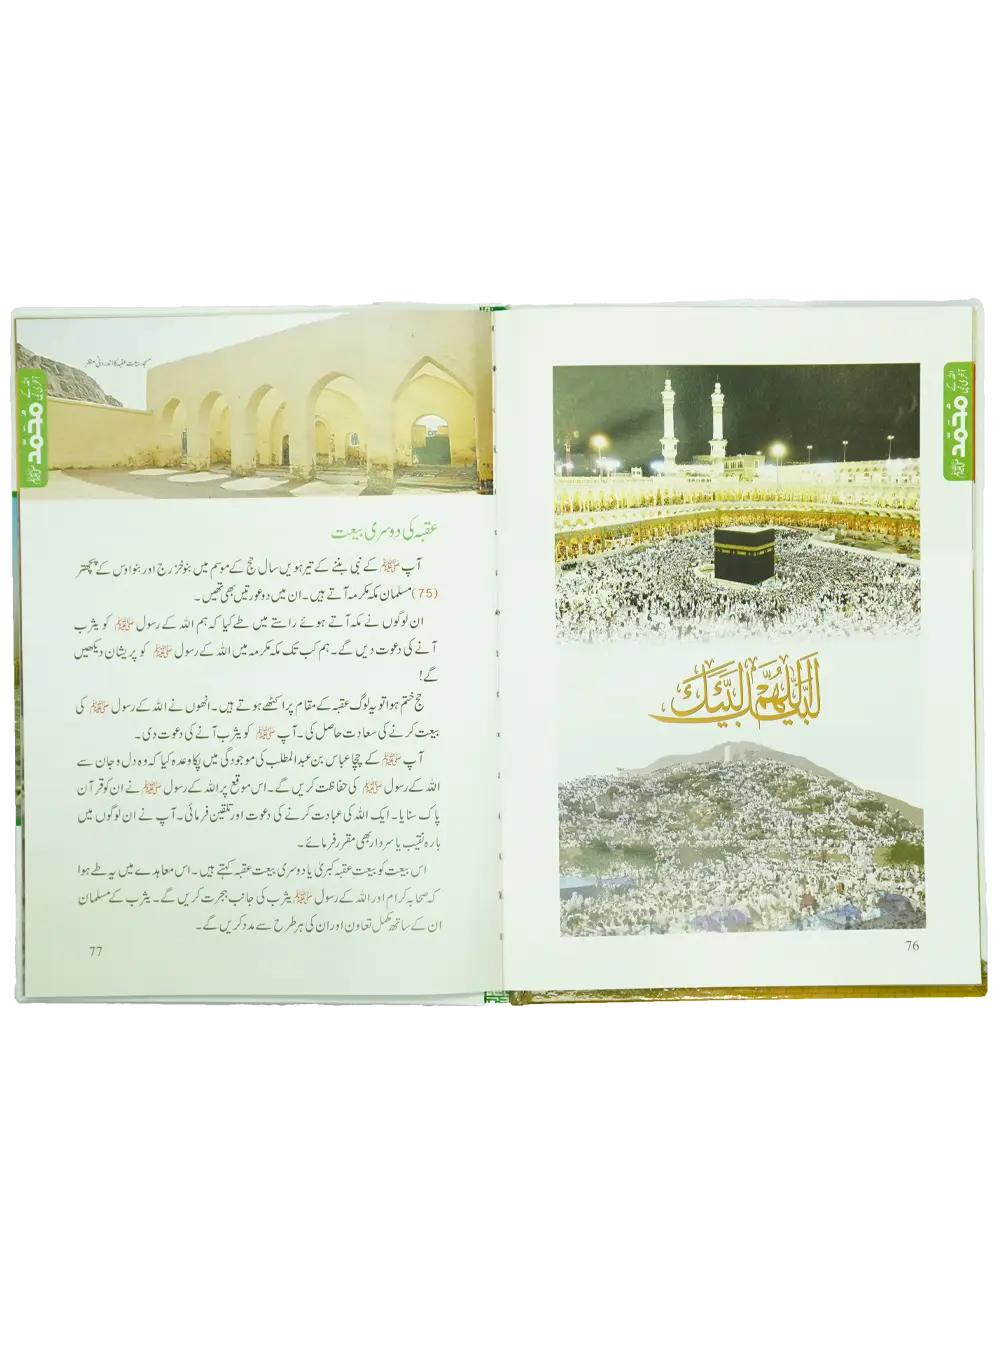 اللہ کے
آخری نبی
مُحَمَّد
ﷺ
لبيك اللهم لبيك
76
اللہ کے
آخری نبی
مُحَمَّد
ﷺ
مسجد بیعت عقبہ کا اندرونی منظر
عقبہ کی دوسری بیعت
آپ ﷺ کے نبی بننے کے تیرھویں سال حج کے موسم میں بنو خزرج اور بنو اوس کے پچھتر
(75) مسلمان مکہ مکرمہ آتے ہیں۔ ان میں دو عورتیں بھی تھیں۔
ان لوگوں نے مکہ آتے ہوئے راستے میں طے کیا کہ ہم اللہ کے رسول ﷺ کو یثرب
آنے کی دعوت دیں گے۔ ہم کب تک مکہ مکرمہ میں اللہ کے رسول ﷺ کو پریشان دیکھیں
گے!
حج ختم ہوا تو یہ لوگ عقبہ کے مقام پر اکٹھے ہوتے ہیں۔ انھوں نے اللہ کے رسول ﷺ کی
بیعت کرنے کی سعادت حاصل کی۔ آپ ﷺ کو یثرب آنے کی دعوت دی۔
آپ ﷺ کے چچا عباس بن عبدالمطلب کی موجودگی میں پکا وعدہ کیا کہ وہ دل و جان سے
اللہ کے رسول ﷺ کی حفاظت کریں گے۔ اس موقع پر اللہ کے رسول ﷺ نے ان کو قرآن
پاک سنایا۔ ایک اللہ کی عبادت کرنے کی دعوت اور تلقین فرمائی۔ آپ نے ان لوگوں میں
بارہ نقیب یا سردار بھی مقرر فرمائے۔
اس بیعت کو بیعت عقبہ کبریٰ یا دوسری بیعت عقبہ کہتے ہیں۔ اس معاہدے میں یہ طے ہوا
کہ صحابہ کرام اور اللہ کے رسول ﷺ یثرب کی جانب ہجرت کریں گے۔ یثرب کے مسلمان
ان کے ساتھ مکمل تعاون اور ان کی ہر طرح سے مدد کریں گے۔
77